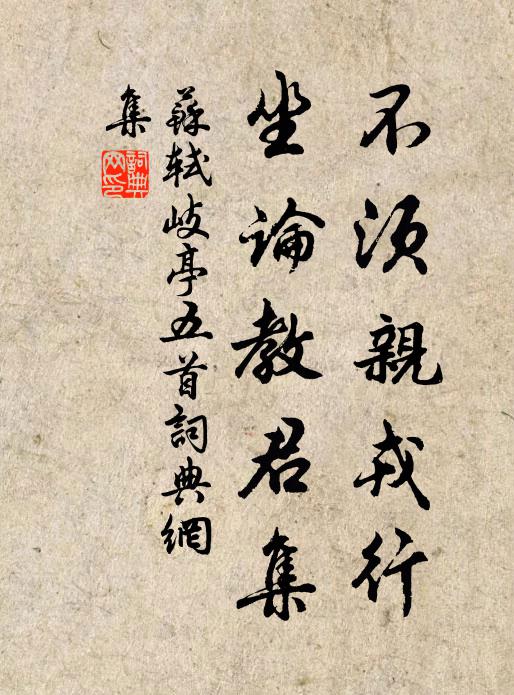 不須親戎行
坐論教君集
蘇軾岐亭五首詞典網
集
詞典網印